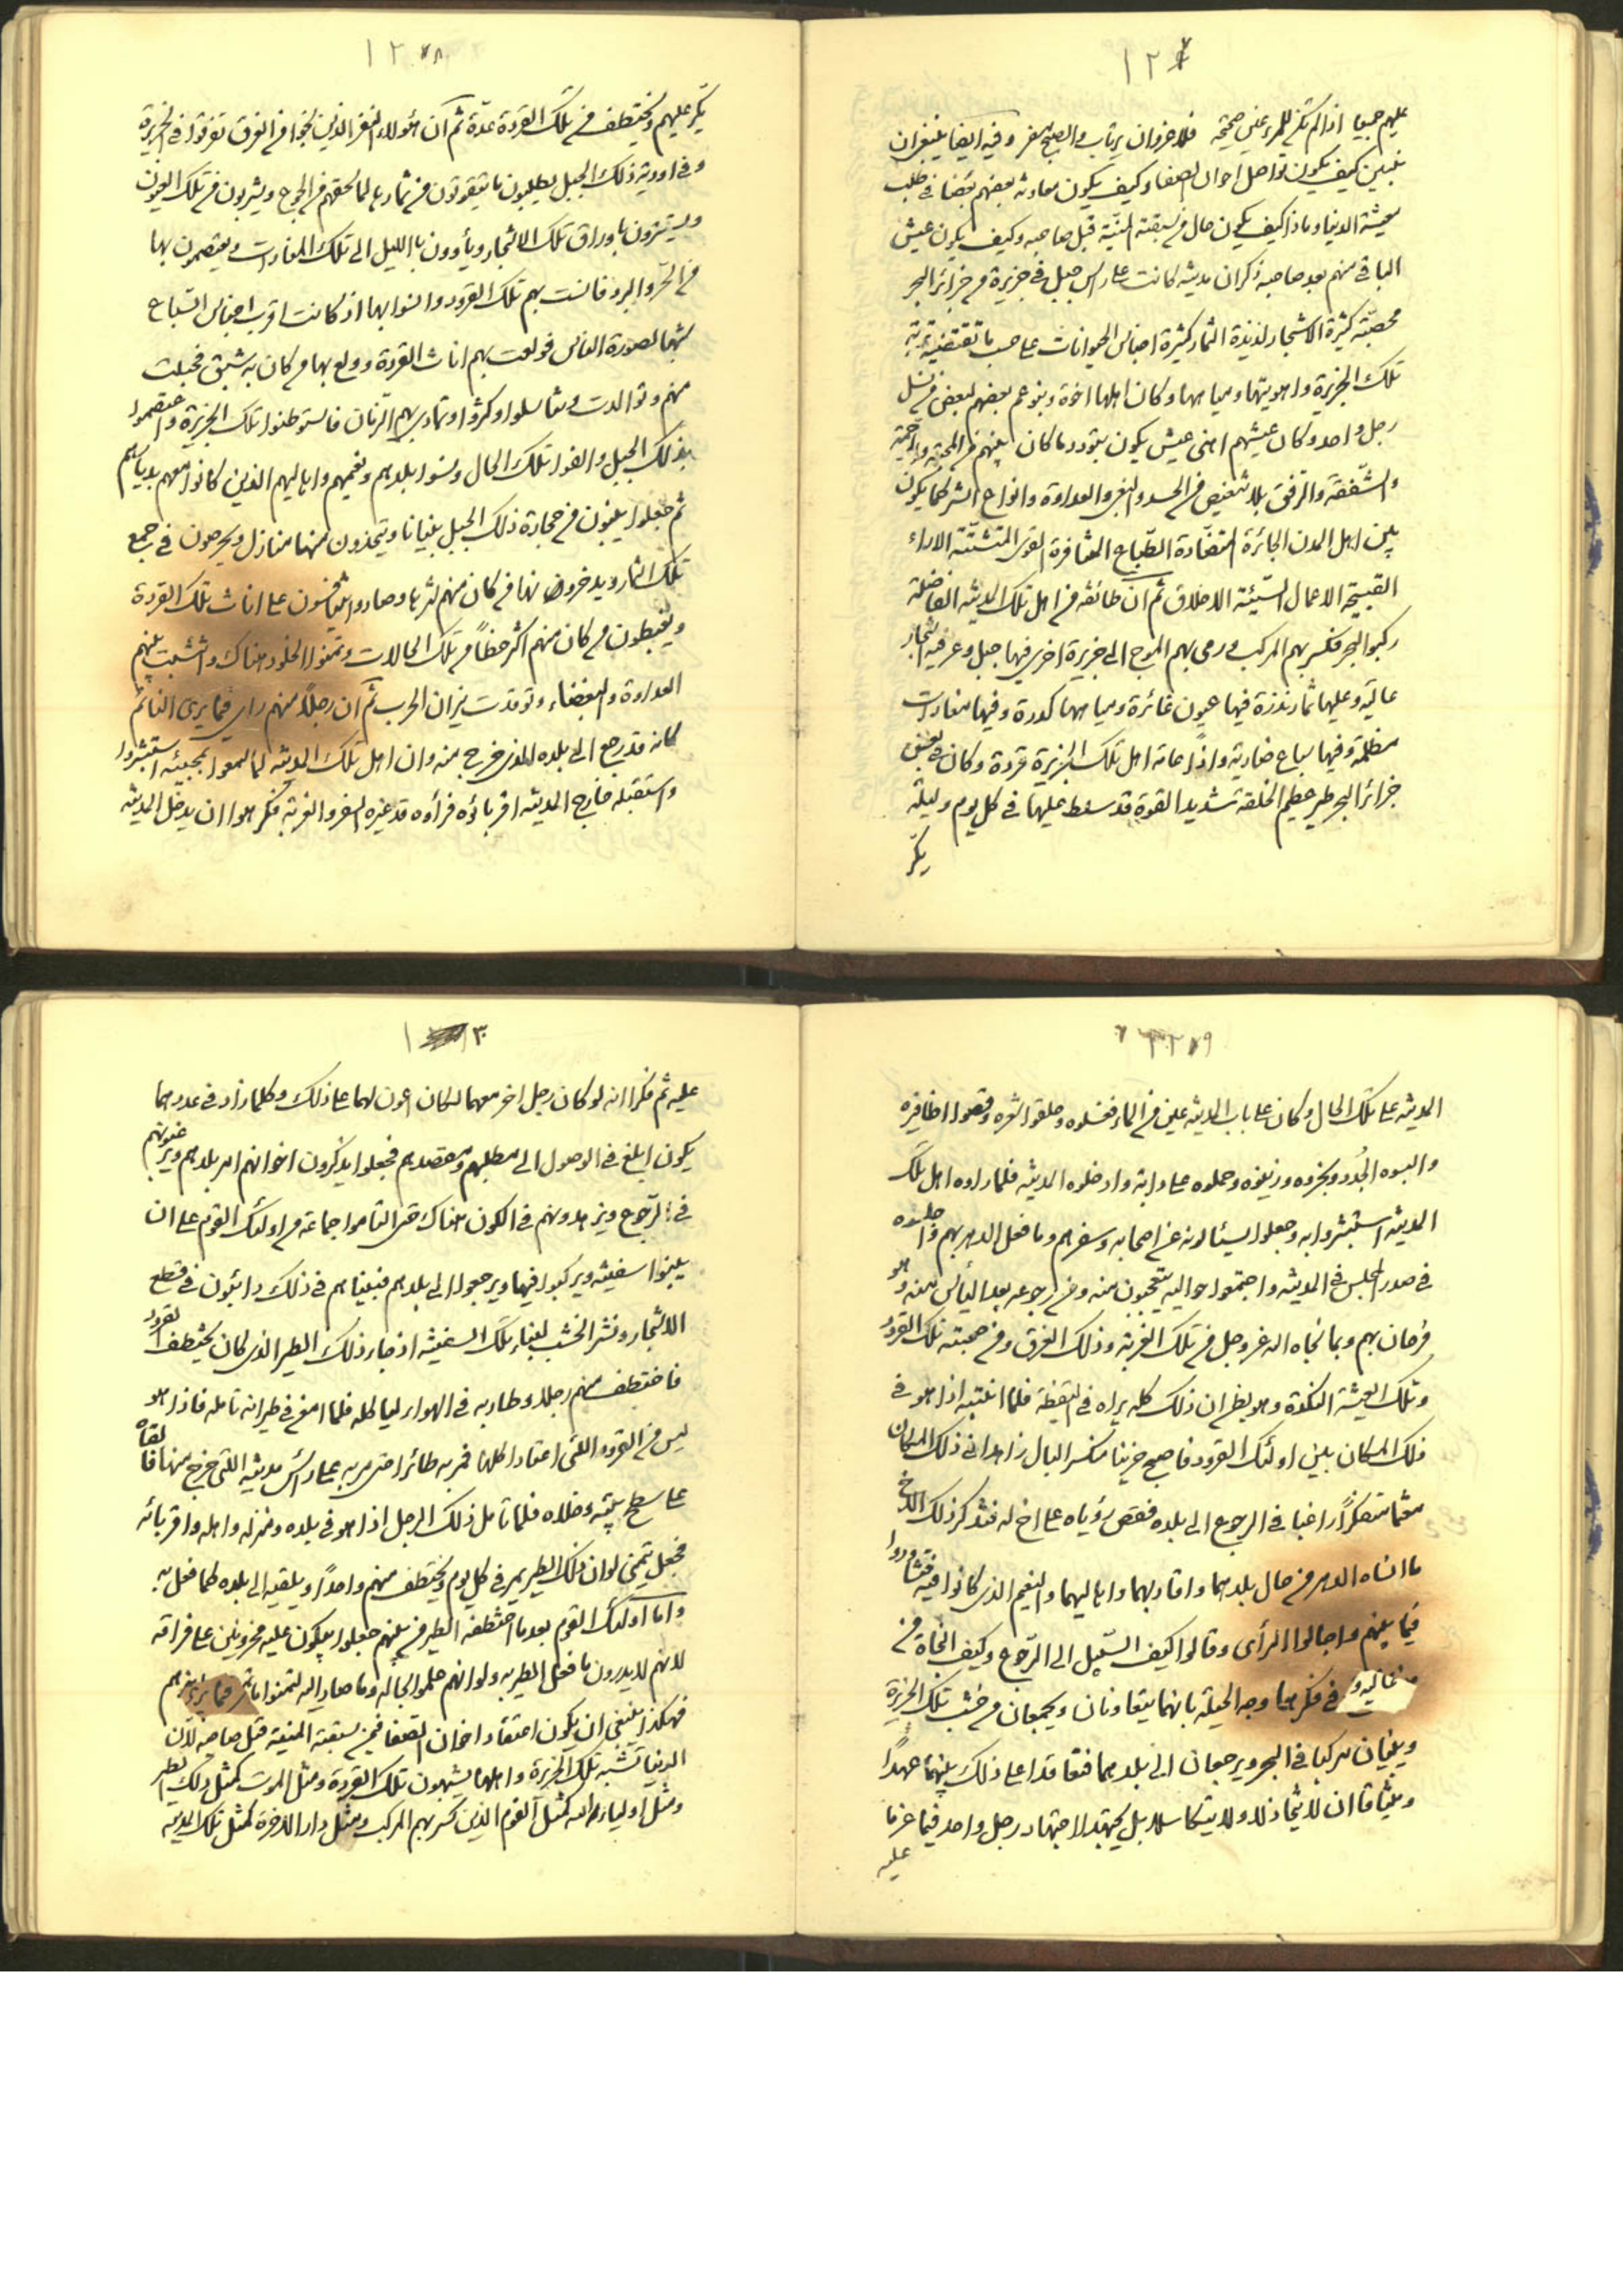 ١٢٧
عليهم جميعا اذا لم تكن للمرء عين صحيحة فلا غرو ان يرتاب والصبح مسفر وفيه ايضا ينبغى ان
نبين كيف يكون تواصل اخوان الصفا وكيف يكون معاونة بعضهم بعضا فى طلب
معيشة الدنيا وماذا كيف يكون حال من سبقته المنية قبل صاحبه وكيف يكون عيش
الباقى منهم بعد صاحبه ذكر ان مدينة كانت على رأس جبل فى جزيرة من جزائر البحر
مخصبة كثيرة الاشجار لذيذة الثمار كثيرة اجناس الحيوانات على حسب ما تقتضيه تربة
تلك الجزيرة واهويتها ومياهها وكان اهلها اخوة وبنو عم بعضهم لبعض من نسل
رجل واحد وكان عيشهم اهنى عيش يكون بتودد ما كان بينهم من المحبة والرحمة
والشفقة والرفق بلا تنغيص من الحسد والبغى والعداوة وانواع الشر كما يكون
بين اهل المدن الجائرة المتضادة الطباع المتنافرة القوى المتشتتة الاراء
القبيحة الاعمال السيئة الاخلاق ثم ان طائفة من اهل تلك المدينة الفاضلة
ركبوا البحر فكسر بهم المركب ورمى بهم الموج الى جزيرة اخرى فيها جبل وعر فيه اشجار
عالية وعليها ثمار نذرة فيها عيون غائرة ومياهها كدرة وفيها مغارات
مظلمة وفيها سباع ضارية واذا عامة اهل تلك الجزيرة قردة وكان فى بعض
جزائر البحر طير عظيم الخلقة شديد القوة قد سلط عليها فى كل يوم وليلة
يكر
١٢٨
يكر عليهم ويختطف من تلك القردة عدة ثم ان هؤلاء النفر الذين نجوا من الغرق تفرقوا فى الجزيرة
وفى اودية ذلك الجبل يطلبون ما يتقوتون من ثمارها لما لحقهم من الجوع ويشربون من تلك العيون
ويستترون باوراق تلك الاشجار ويأوون بالليل الى تلك المغارات ويعتصمون بها
من الحر والبرد فانست بهم تلك القرود وانسوا بها اذ كانت اقرب اجناس السباع
شبها لصورة الناس فولعت بهم اناث القردة وولع بها من كان به شبق فحبلت
منهم وتوالدت وتناسلوا وكثروا وتمادى بهم الزمان فاستوطنوا تلك الجزيرة واعتصموا
بذلك الجبل والفوا تلك الحال ونسوا بلدهم ونعيمهم واهاليهم الذين كانوا معهم بديا
ثم جعلوا يبنون من حجارة ذلك الجبل بنيانا ويتخذون منها منازل ويحرصون فى جمع
تلك الثمار ويدخرون بها من كان منهم شرها وصاروا يتنافسون على اناث تلك القردة
ويغبطون من كان منهم اكثر حظا من تلك الحالات وتمنوا الخلود هناك وانتشبت بينهم
العداوة والبغضاء وتوقدت نيران الحرب ثم ان رجلا منهم راى فيما يرى النائم
كانه قد رجع الى بلده الذى خرج منه وان اهل تلك المدينة لما سمعوا بمجيئه استبشروا
واستقبله خارج المدينة اقرباؤه فرأوه قد غيره السفر والغربة فكرهوا ان يدخل المدينة
١٢٩
المدينة على تلك الحال وكان على باب المدينة عين من الماء فغسلوه وحلقوا شعره وقصوا اظافيره
والبسوه الجدد وبخروه وزينوه وحملوه على دابة وادخلوه المدينة فلما راوه اهل تلك
المدينة استبشروا به وجعلوا يسئالونه عن اصحابه وسفرهم وما فعل الدهر بهم واجلسوه
فى صدر المجلس فى المدينة واجتمعوا حواليه يتعجبون منه ومن رجوعه بعد اليأس منه وهو
فرحان بهم وبما نجاه الله عز وجل من تلك الغربة وذلك الغرق ومن صحبته تلك القرود
وتلك العيشة النكدة وهو يظن ان ذلك كله يراه فى اليقظة فلما انتبه اذا هو فى
ذلك المكان بين اولئك القرود فاصبح حزينا منكسر البال زاهدا فى ذلك المكان
مغتما متفكرا راغبا فى الرجوع الى بلده فقص رؤياه على اخ له فتذكر ذلك الاخ
ما انساه الدهر من حال بلدهما واقاربهما واهاليهما والنعيم الذى كانوا فيه فتشاوروا
فيما بينهم واجالوا الرأى وقالوا كيف السبيل الى الرجوع وكيف النجاة من
فى فكرهما وجه الحيلة بانهما يتعاونان ويجمعان من خشب تلك الجزيرة
ويبنيان مركبا فى البحر ويرجعان الى بلدهما فتعاقدا على ذلك بينهما عهدا
وميثاقا ان لا يتخاذلا ولا يتكاسلا بل يجتهدا اجتهاد رجل واحد فيما عزما
عليه
١٣٠
عليه ثم فكرا انه لو كان رجل اخر معهما لكان اعون لهما على ذلك وكلما زاد فى عددهما
يكون ابلغ فى الوصول الى مطلبهم ومقصدهم فجعلوا يذكرون اخوانهم امر بلدهم ويرغبونهم
فى الرجوع ويزهدونهم فى الكون هناك حتى التاموا جماعة من اولئك القوم على ان
يبنوا سفينة ويركبوا فيها ويرجعوا الى بلدهم فبيناهم فى ذلك دائبون فى قطع
الاشجار ونشر الخشب لبناء تلك السفينة اذ جاء ذلك الطير الذى كان يختطف القرود
فاختطف منهم رجلا وطار به فى الهواء لياكله فلما امعن فى طيرانه تامله فاذا هو
ليس من القرود اللتى اعتاد اكلها فمر به طائرا حتى مر به على رأس مدينته اللتى خرج منها فالقاه
على سطح بيته وخلاه فلما تامل ذلك الرجل اذا هو فى بلده ومنزله واهله واقربائه
فجعل يتمنى لو ان ذلك الطير يمر فى كل يوم ويختطف منهم واحدا ويلقيه الى بلده كما فعل به
واما اولئك القوم بعد ما اختطفه الطير من بينهم جعلوا يبكون عليه محزونين على فراقه
لانهم لا يدرون ما فعل الطير به ولو انهم علموا بحاله وما صار اليه لتمنوا
فهكذا ينبغى ان يكون اعتقاد اخوان الصفا فيمن سبقته المنية قبل صاحبه لان
الدنيا تشبه تلك الجزيرة واهلها يشبهون تلك القردة ومثل الموت كمثل ذلك الطير
ومثل اولياء الله كمثل القوم الذين كسر بهم المركب ومثل دار الاخرة كمثل تلك المدينة